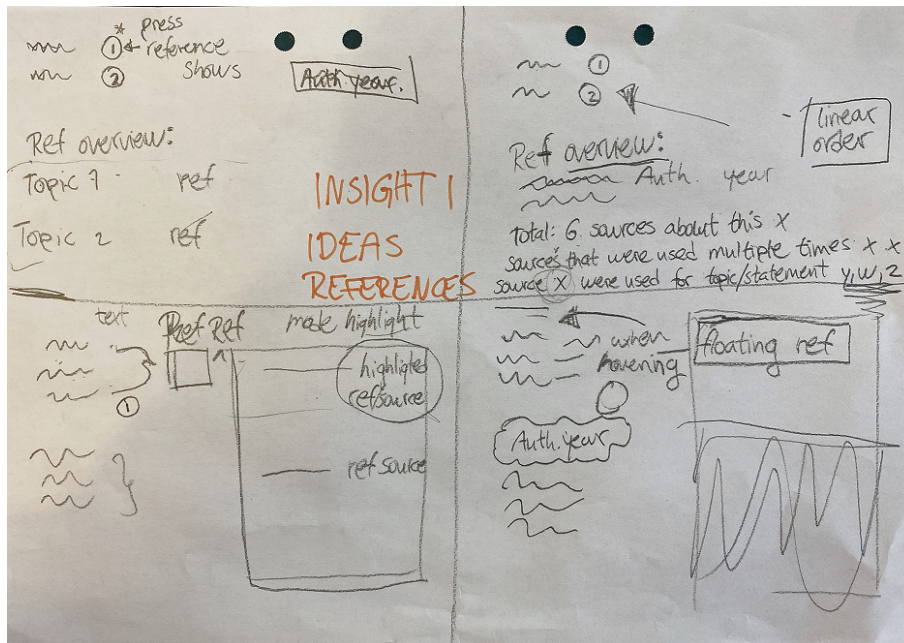 * press
① reference
② shows
Auth. year.
Ref overview:
Topic 1 ref
Topic 2 ref
INSIGHT 1
IDEAS
REFERENCES
①
②
linear
order
Ref overview:
Auth. year
Total: 6 sources about this x
sources that were used multiple times x x
source x were used for topic/statement y, w, z
text
Ref
mode highlight
highligted
ref source
①
ref source
when
hovering
floating ref
Auth. year